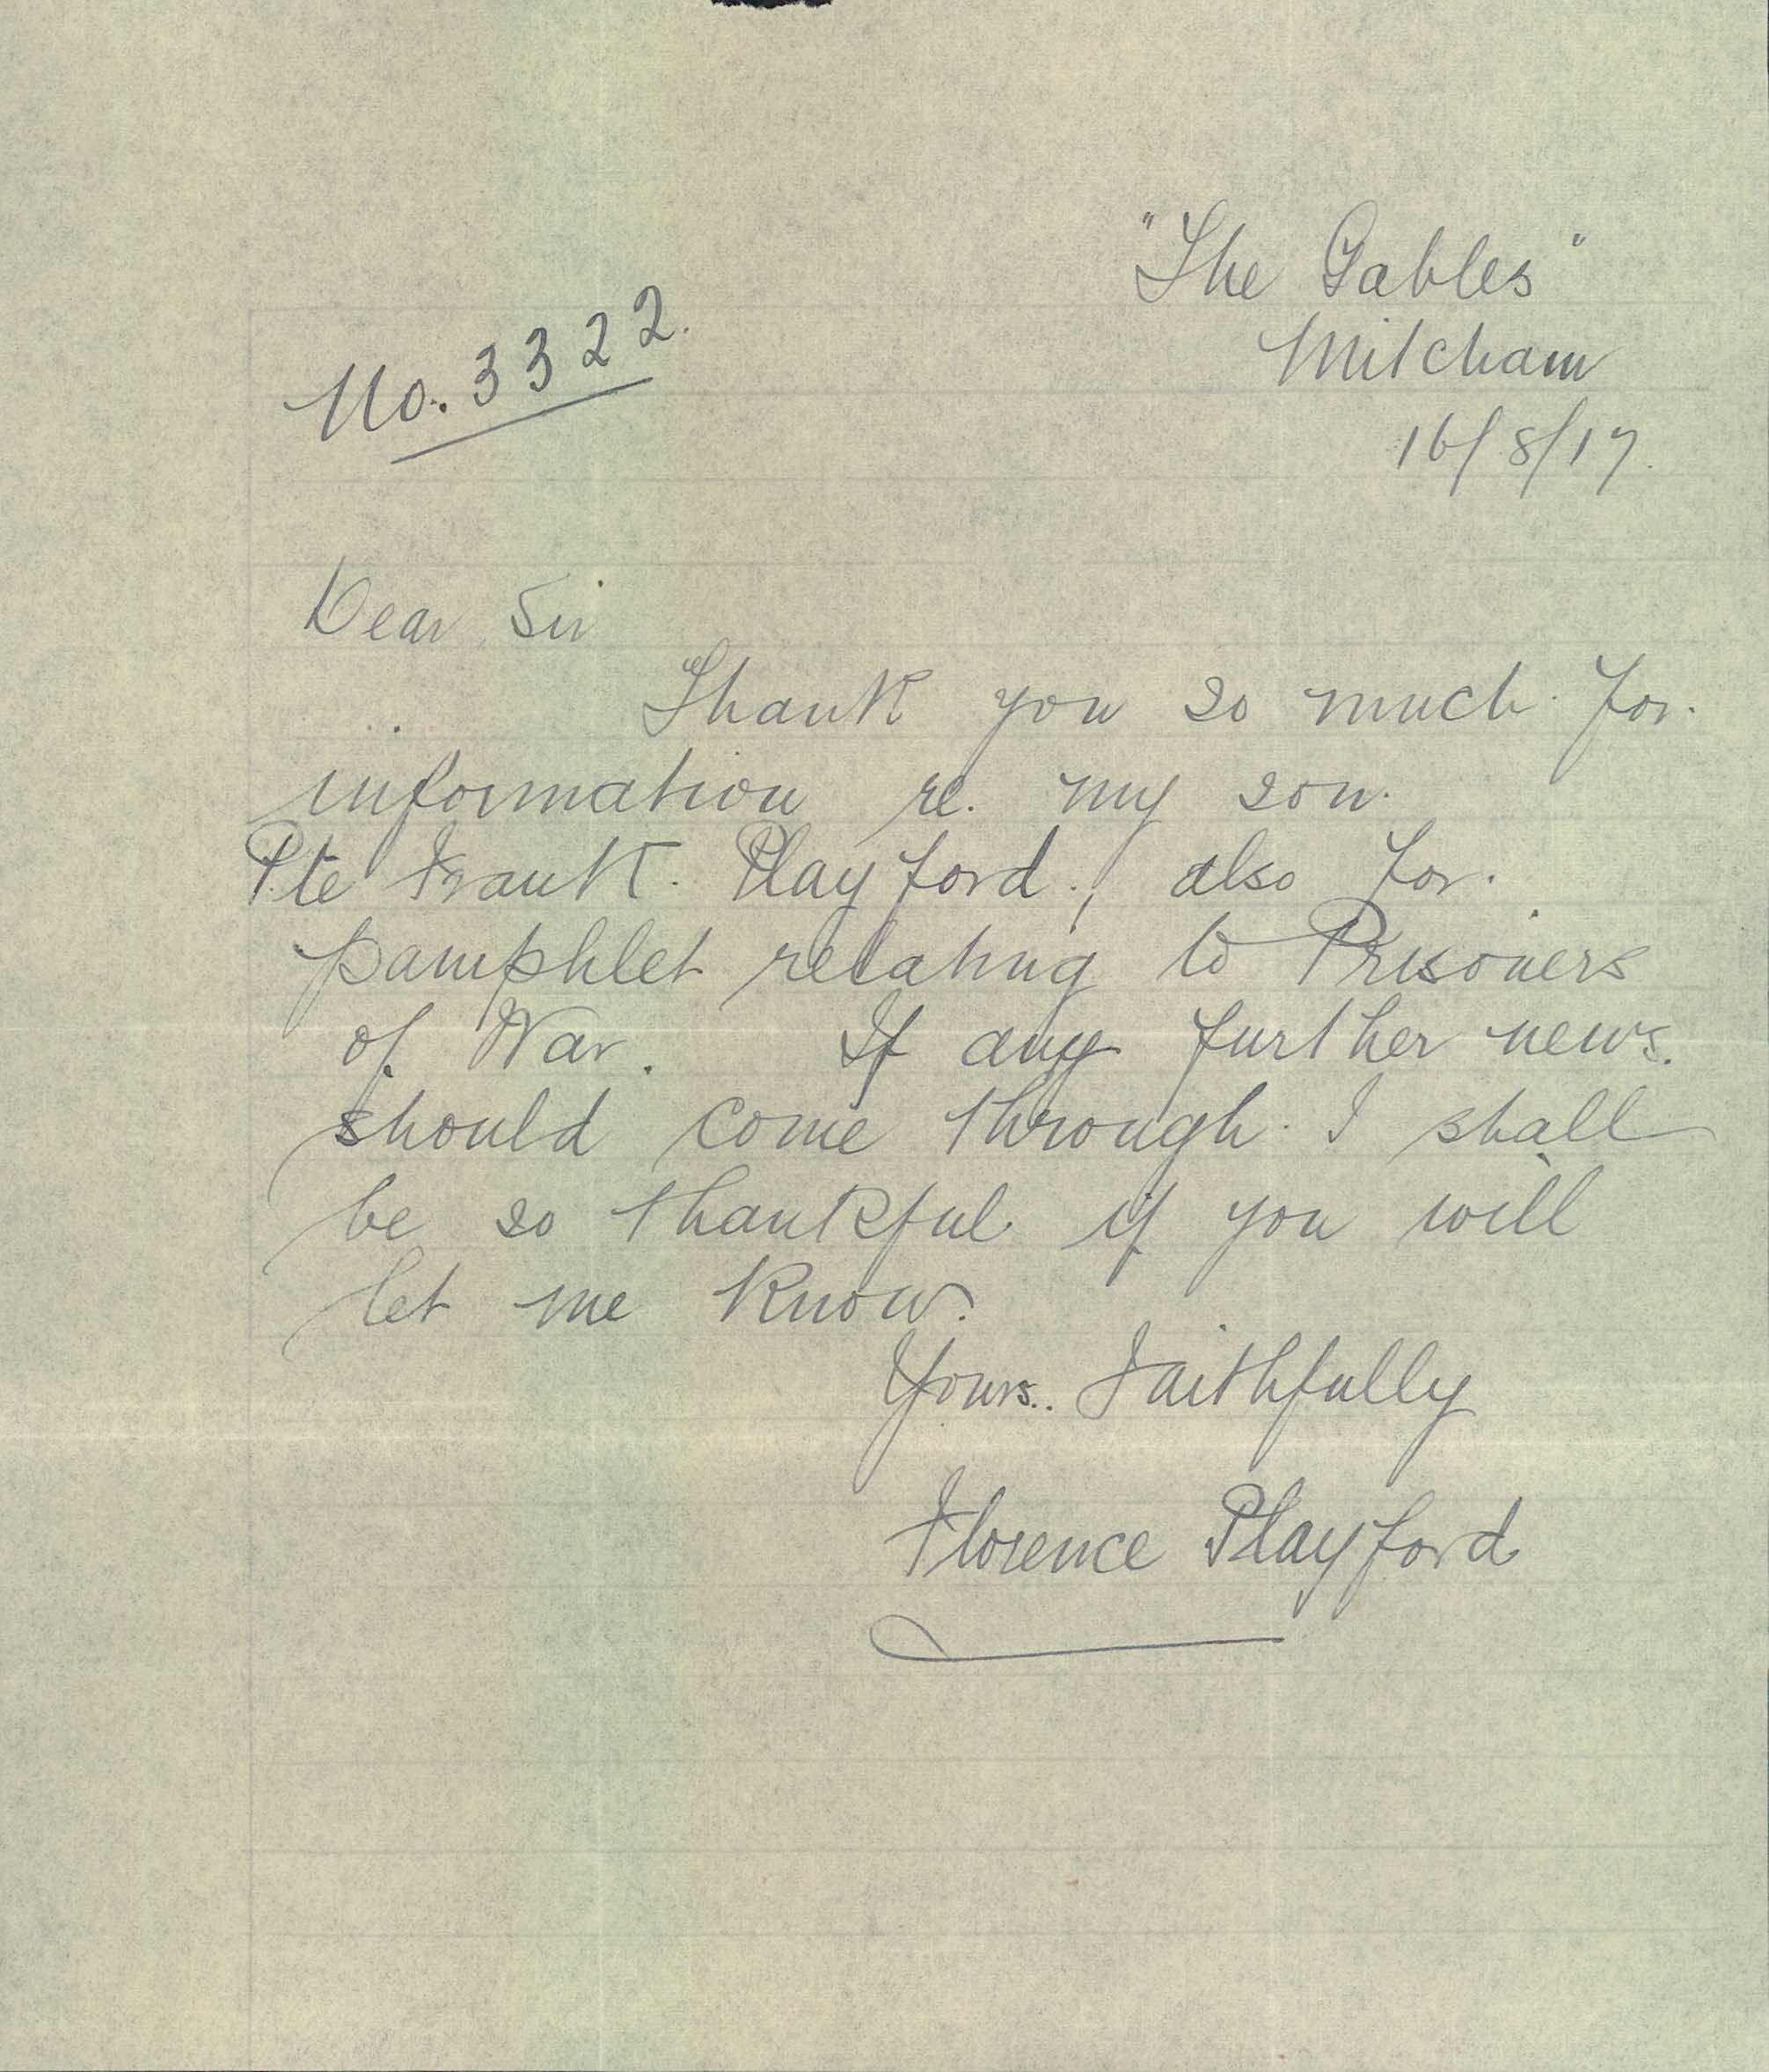 "The Gables"
Mitcham
No. 3322.
16/8/17.
Dear Sir
Thank you so much for.
information re. my son.
Pte Frank. Playford., also for.
pamphlet relating to Prisoners
of War. If any further news.
should come through. I shall
be so thankful if you will
let me know.
Yours.. Faithfully
Florence Playford